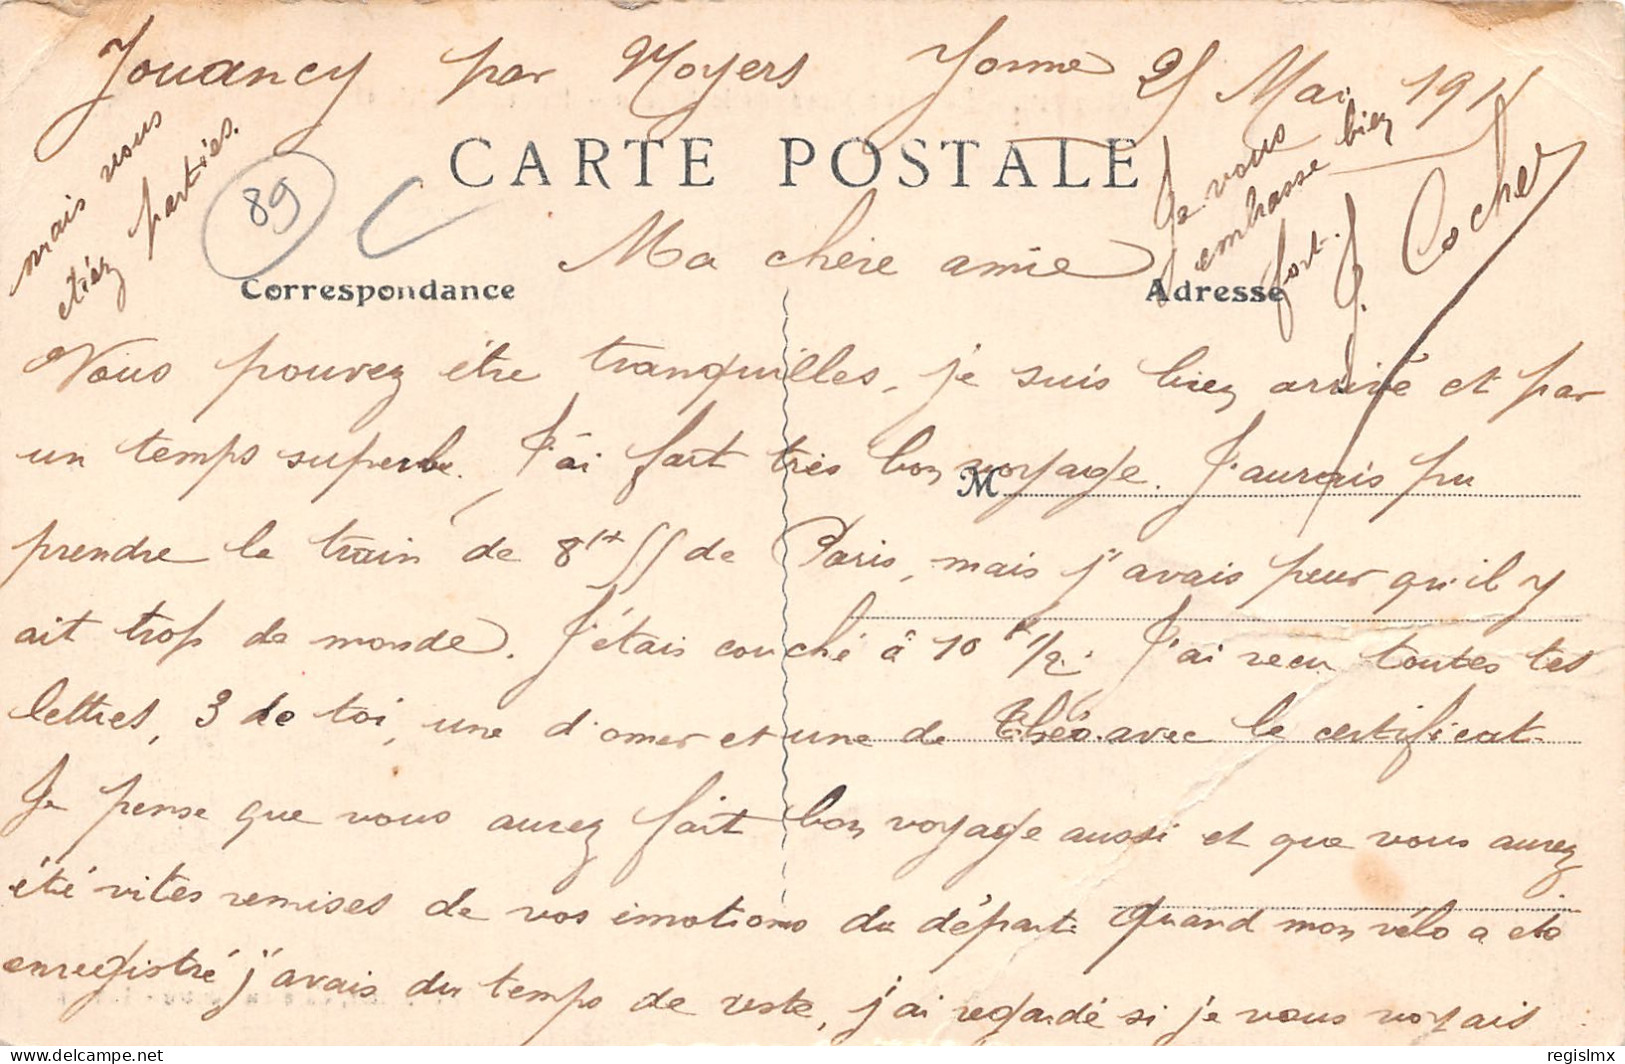 Jouancy par Noyers Yonne 25 Mai 191
CARTE POSTALE
89
Ma chère amie
Correspondance
Adresse
Vous pouvez être tranquilles, je suis bien arrivé et par
un temps superbe. J'ai fait très bon voyage. J'aurais pu
M
prendre le train de 8H 55 de Paris, mais j'avais peur qu'il y
ait trop de monde. J'étais couché à 10 h 1/2. J'ai reçu toutes tes
lettres, 3 de toi, une d'omer et une de Théo avec le certificat
Je pense que vous aurez fait bon voyage aussi et que vous aurez
été vites remises de vos émotions du départ. Quand mon vélo a été
enregistré j'avais du temps de reste, j'ai regardé si je vous voyais
mais vous
étiez parties.
Je vous
embrasse bien
fort. J. Cocher
delcampe.net
regislmx